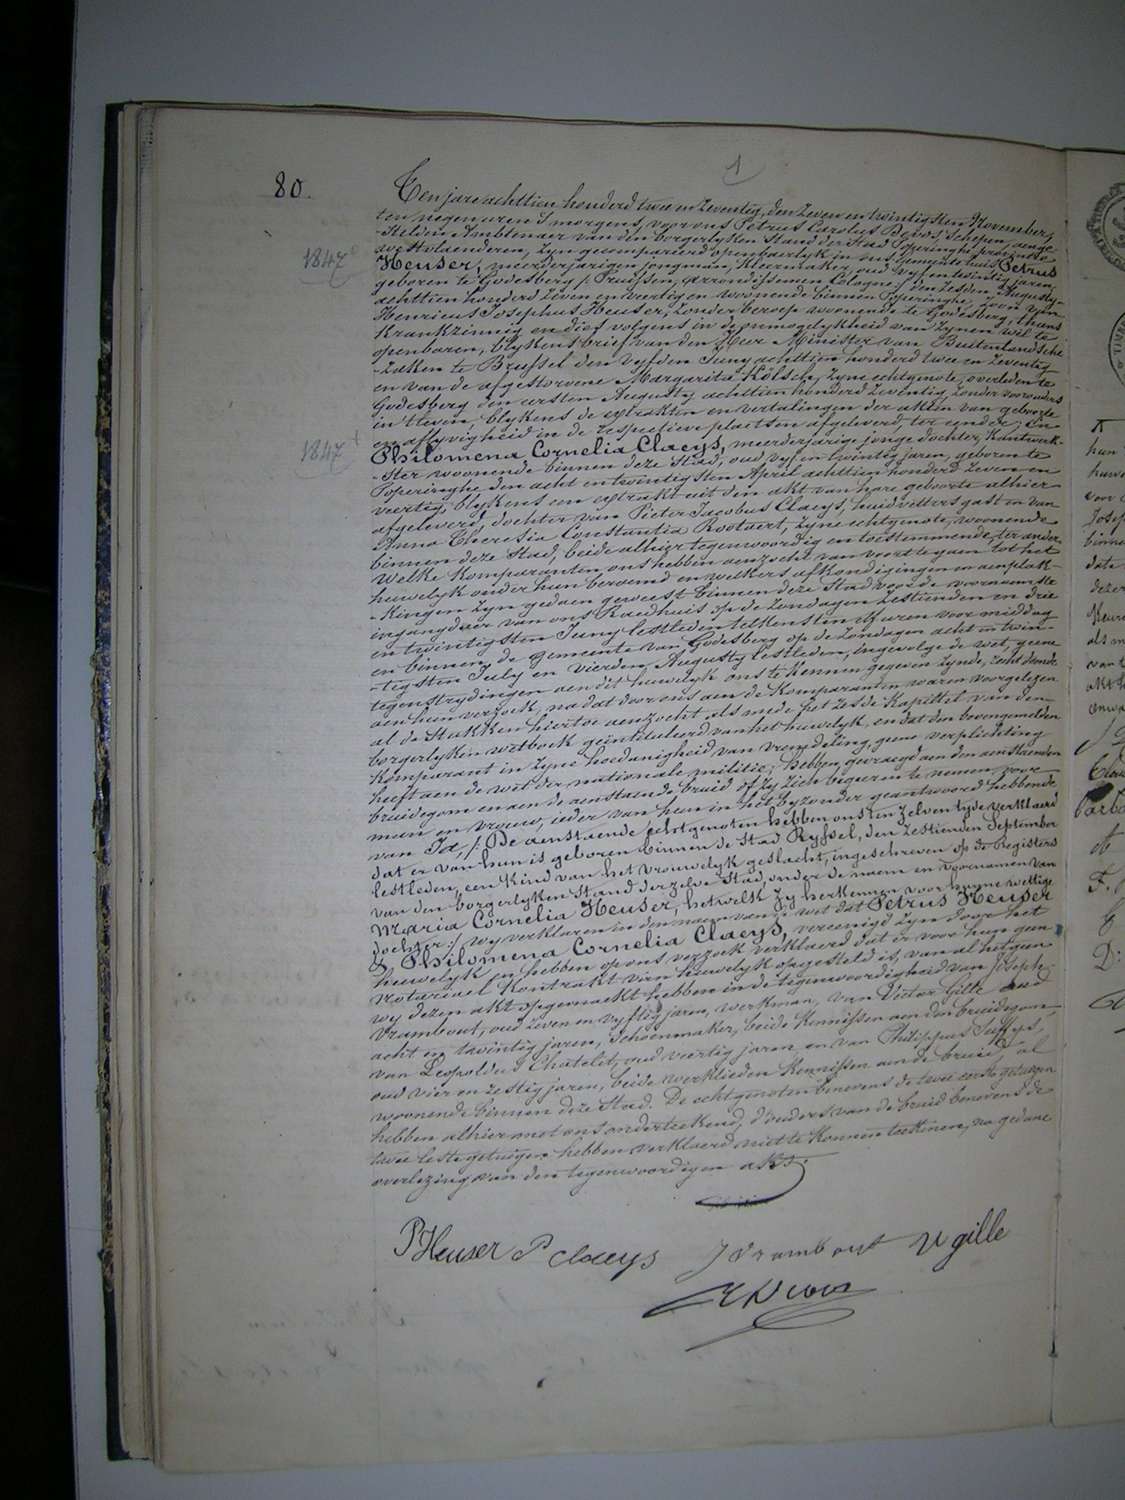 1
80.
Ten jare achttien honderd twee en zeventig, den zeven en twintigsten November,
ten negen uren 's morgens, voor ons Petrus Carolus Devos, Schepen, aenge-
-stelden Ambtenaer van den borgerlyken Stand der Stad Poperinghe, provincie
1847
westvlaenderen, zyn gecompareerd openbaerlyk in ons gemeentehuis Petrus
Heuser, meerderjarigen jongman, kleermaker, oud vyf en twintig jaren,
geboren te Godesberg /: Pruissen, arrondissement Cologne :/ den zesden Augusty
achttien honderd zeven en veertig en woonende binnen Poperinghe, zoon van
Henricus Josephus Heuser, zonder beroep woonende te Godesberg, thans
krankzinnig en dies volgens in de onmogelykheid van zynen wil te
openbaren, blykens brief van den Heer Minister van Buitenlandsche
-zaken te Brussel den vyfden Juny achttien honderd twee en zeventig
en van de afgestorvene Margarita Kölsch, zyne echtgenote, overleden te
Godesberg den eersten Augusty achttien honderd zeventig, zonder voorouders
in 't leven, blykens de extrakten en vertalingen der akten van geboorte
en aflyvigheid in de respectieve plaetsen afgeleverd, ter eender; En
1847
Philomena Cornelia Claeys, meerderjarige jonge dochter, Kantwerk-
-ster woonende binnen deze Stad, oud vyf en twintig jaren, geboren te
Poperinghe den acht en twintigsten April achttien honderd zeven en
veertig, blykens een extrakt uit den akt van hare geboorte alhier
afgeleverd, dochter van Pieter Jacobus Claeys, huidvettersgast en van
Anna Theresia Constantia Rootaert, zyne echtgenote, woonende
binnen deze Stad, beide alhier tegenwoordig en toestemmende, ter ander.
Welke komparanten ons hebben aenzocht van voort te gaen tot het
huwelyk onder hun beraemd en welkers afkondigingen en aenplak-
-kingen zyn gedaen geweest binnen deze Stad voor de voornaemste
ingangdeur van ons Raedhuis op de zondagen zestienden en drie
en twintigsten Juny lestleden telkens ten elf uren voor middag
en binnen de gemeente van Godesberg op de zondagen acht en twin-
-tigsten July en vierden Augusty lestleden, ingevolge de wet, geene
tegenstrydingen aen dit huwelyk ons te kennen gegeven zynde, recht doende
aen hun verzoek, na dat door ons aen de Komparanten waren voorgelezen
al de Stukken hiertoe aenzocht als mede het zesde Kapittel van den
borgerlyken wetboek geïntituleerd van het huwelyk, en dat den bovengemelden
komparant in zyne hoedanigheid van vreemdeling, geene verplichting
heeft aen de wet der nationale militie; hebben gevraegd aen den aenstaenden
bruidegom en aen de aenstaende bruid of zy zich begeeren te nemen voor
man en vrouw, ieder van hun in het byzonder geantwoord hebbende
van Ja, /: De aenstaende echtgenoten hebben ons ten zelven tyde verklaerd
dat er van hun is geboren binnen de Stad Ryssel, den zestienden September
lestleden, een kind van het vrouwelyk geslacht, ingeschreven op de Registers
van den borgerlyken Stand derzelve Stad, onder de naem en voornamen van
Maria Cornelia Heuser, hetwelk zy herkennen voor hunne wettige
dochter :/ wy verklaren in den naem van de wet dat Petrus Heuser
& Philomena Cornelia Claeys, vereenigd zyn door het
huwelyk en hebben op ons verzoek verklaerd dat er voor hun geen
notarieel Kontrakt van huwelyk opgesteld is, van al hetgeen
wy dezen akt opgemaekt hebben in de tegenwoordigheid van Joseph
Vrambout, oud zeven en vyftig jaren, werkman, van Victor Gille oud
acht en twintig jaren, Schoenmaker, beide Kennissen aen den bruidegom,
van Leopoldus Chatelet, oud veertig jaren en van Philippus
oud vier en zestig jaren, beide werklieden Kennissen aen de bruid, al
woonende binnen deze Stad. De echtgenoten benevens de twee eerste getuigen
hebben alhier met ons onderteekend, d'ouders van de bruid benevens de
twee leste getuigen hebben verklaerd niet te konnen teekenen, na gedane
overlezing van den tegenwoordigen akt.
P Heuser P Claeys J Vrambout V gille